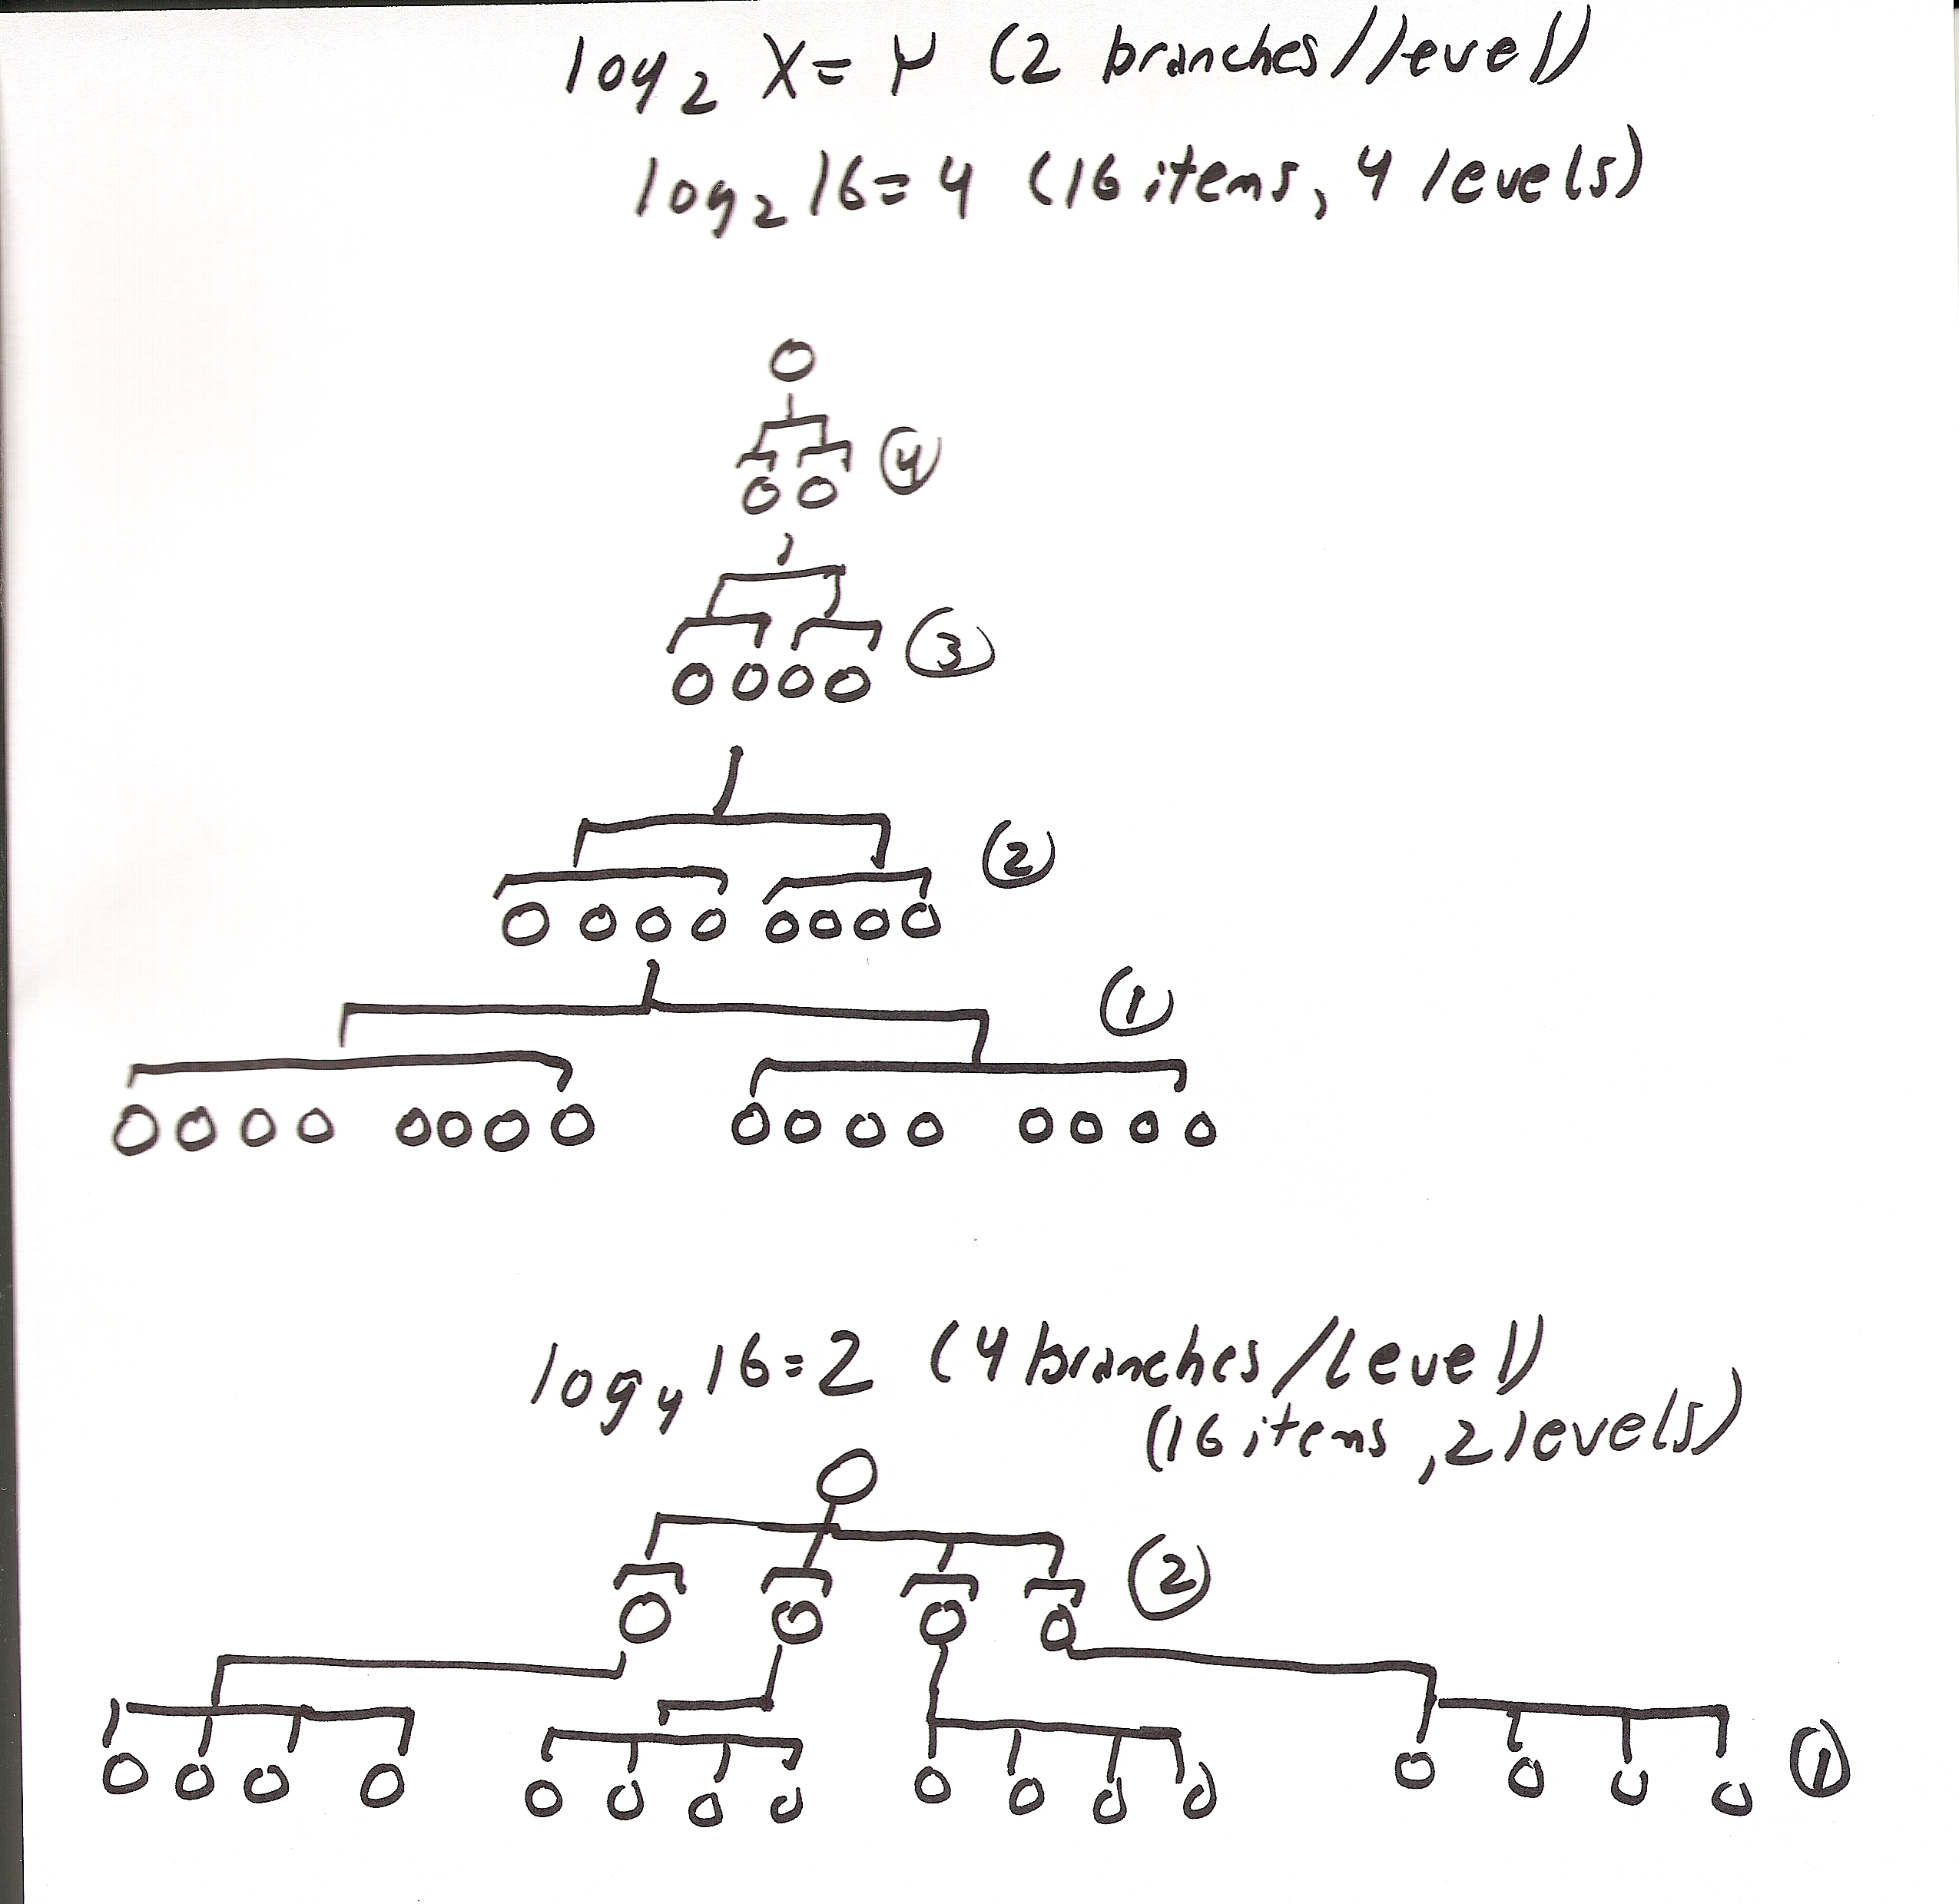 log₂ X = y (2 branches/level)
log₂ 16 = 4 (16 items, 4 levels)
4
3
2
1
log₄ 16 = 2 (4 branches/level)
(16 items, 2 levels)
2
1